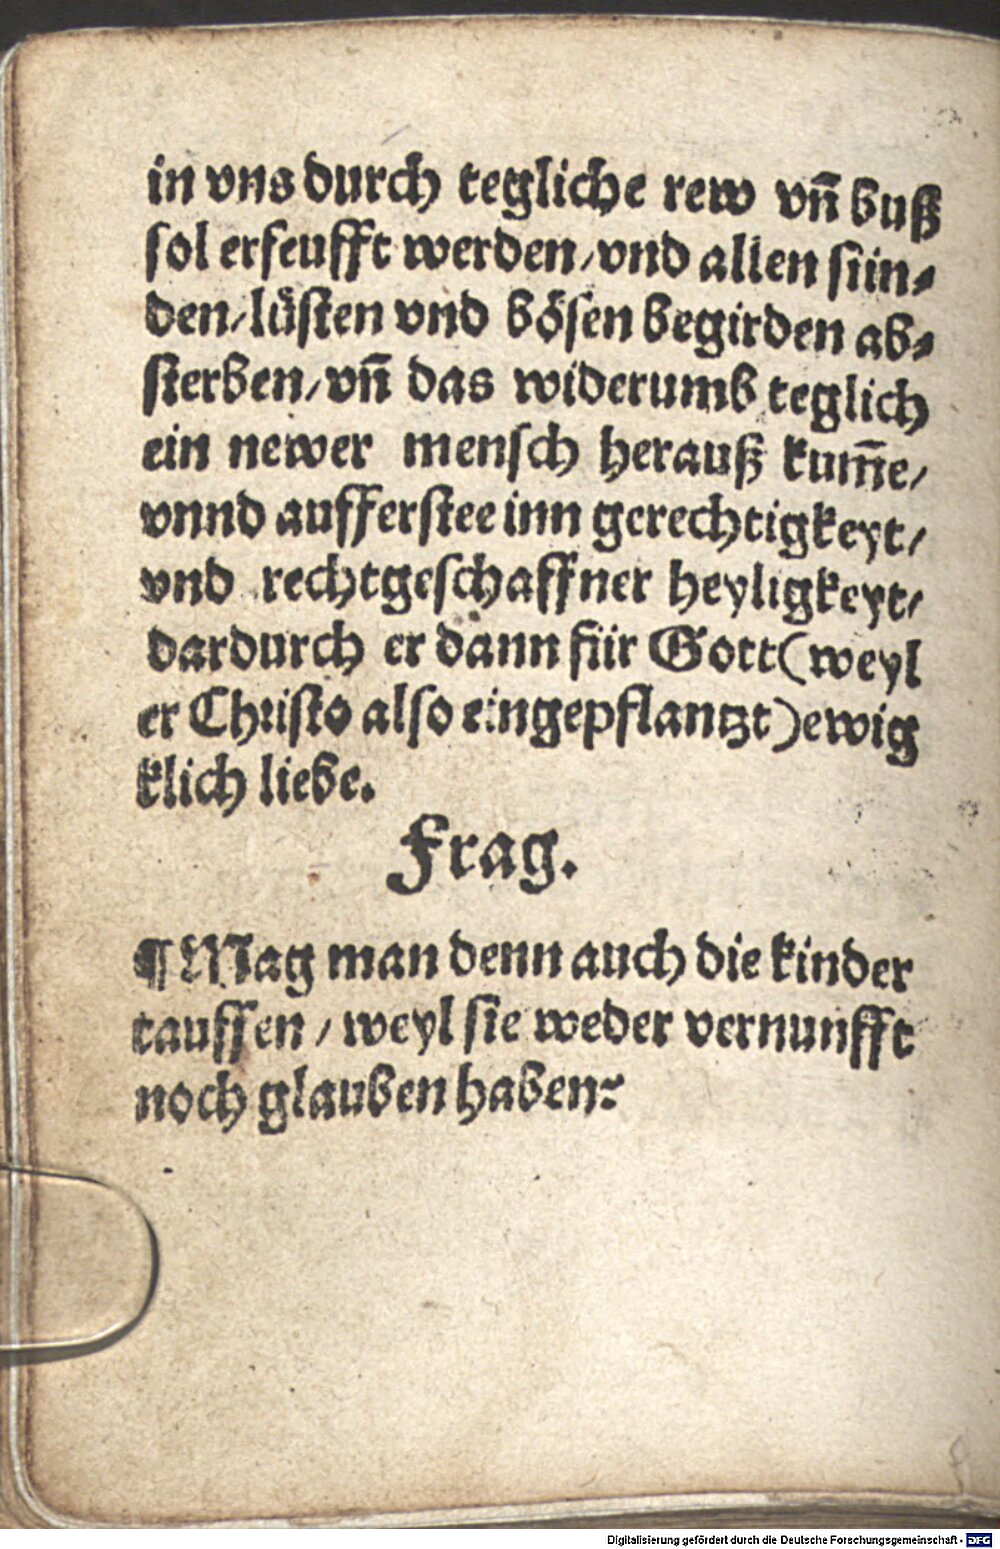 in vns durch tegliche rew vn̄ buß
sol erseufft werden / vnd allen sün⸗
den / lüsten vnd bösen begirden ab⸗
sterben / vn̄ das widerumb teglich
ein newer mensch herauß kum̄e /
vnnd aufferstee inn gerechtigkeyt /
vnd rechtgeschaffner heyligkeyt /
dardurch er dann für Gott (weyl
er Christo also eingepflantzt) ewig
klich liebe.
Frag.
¶ Mag man denn auch die kinder
tauffen / weyl sie weder vernunfft
noch glauben haben?
Digitalisierung gefördert durch die Deutsche Forschungsgemeinschaft - DFG